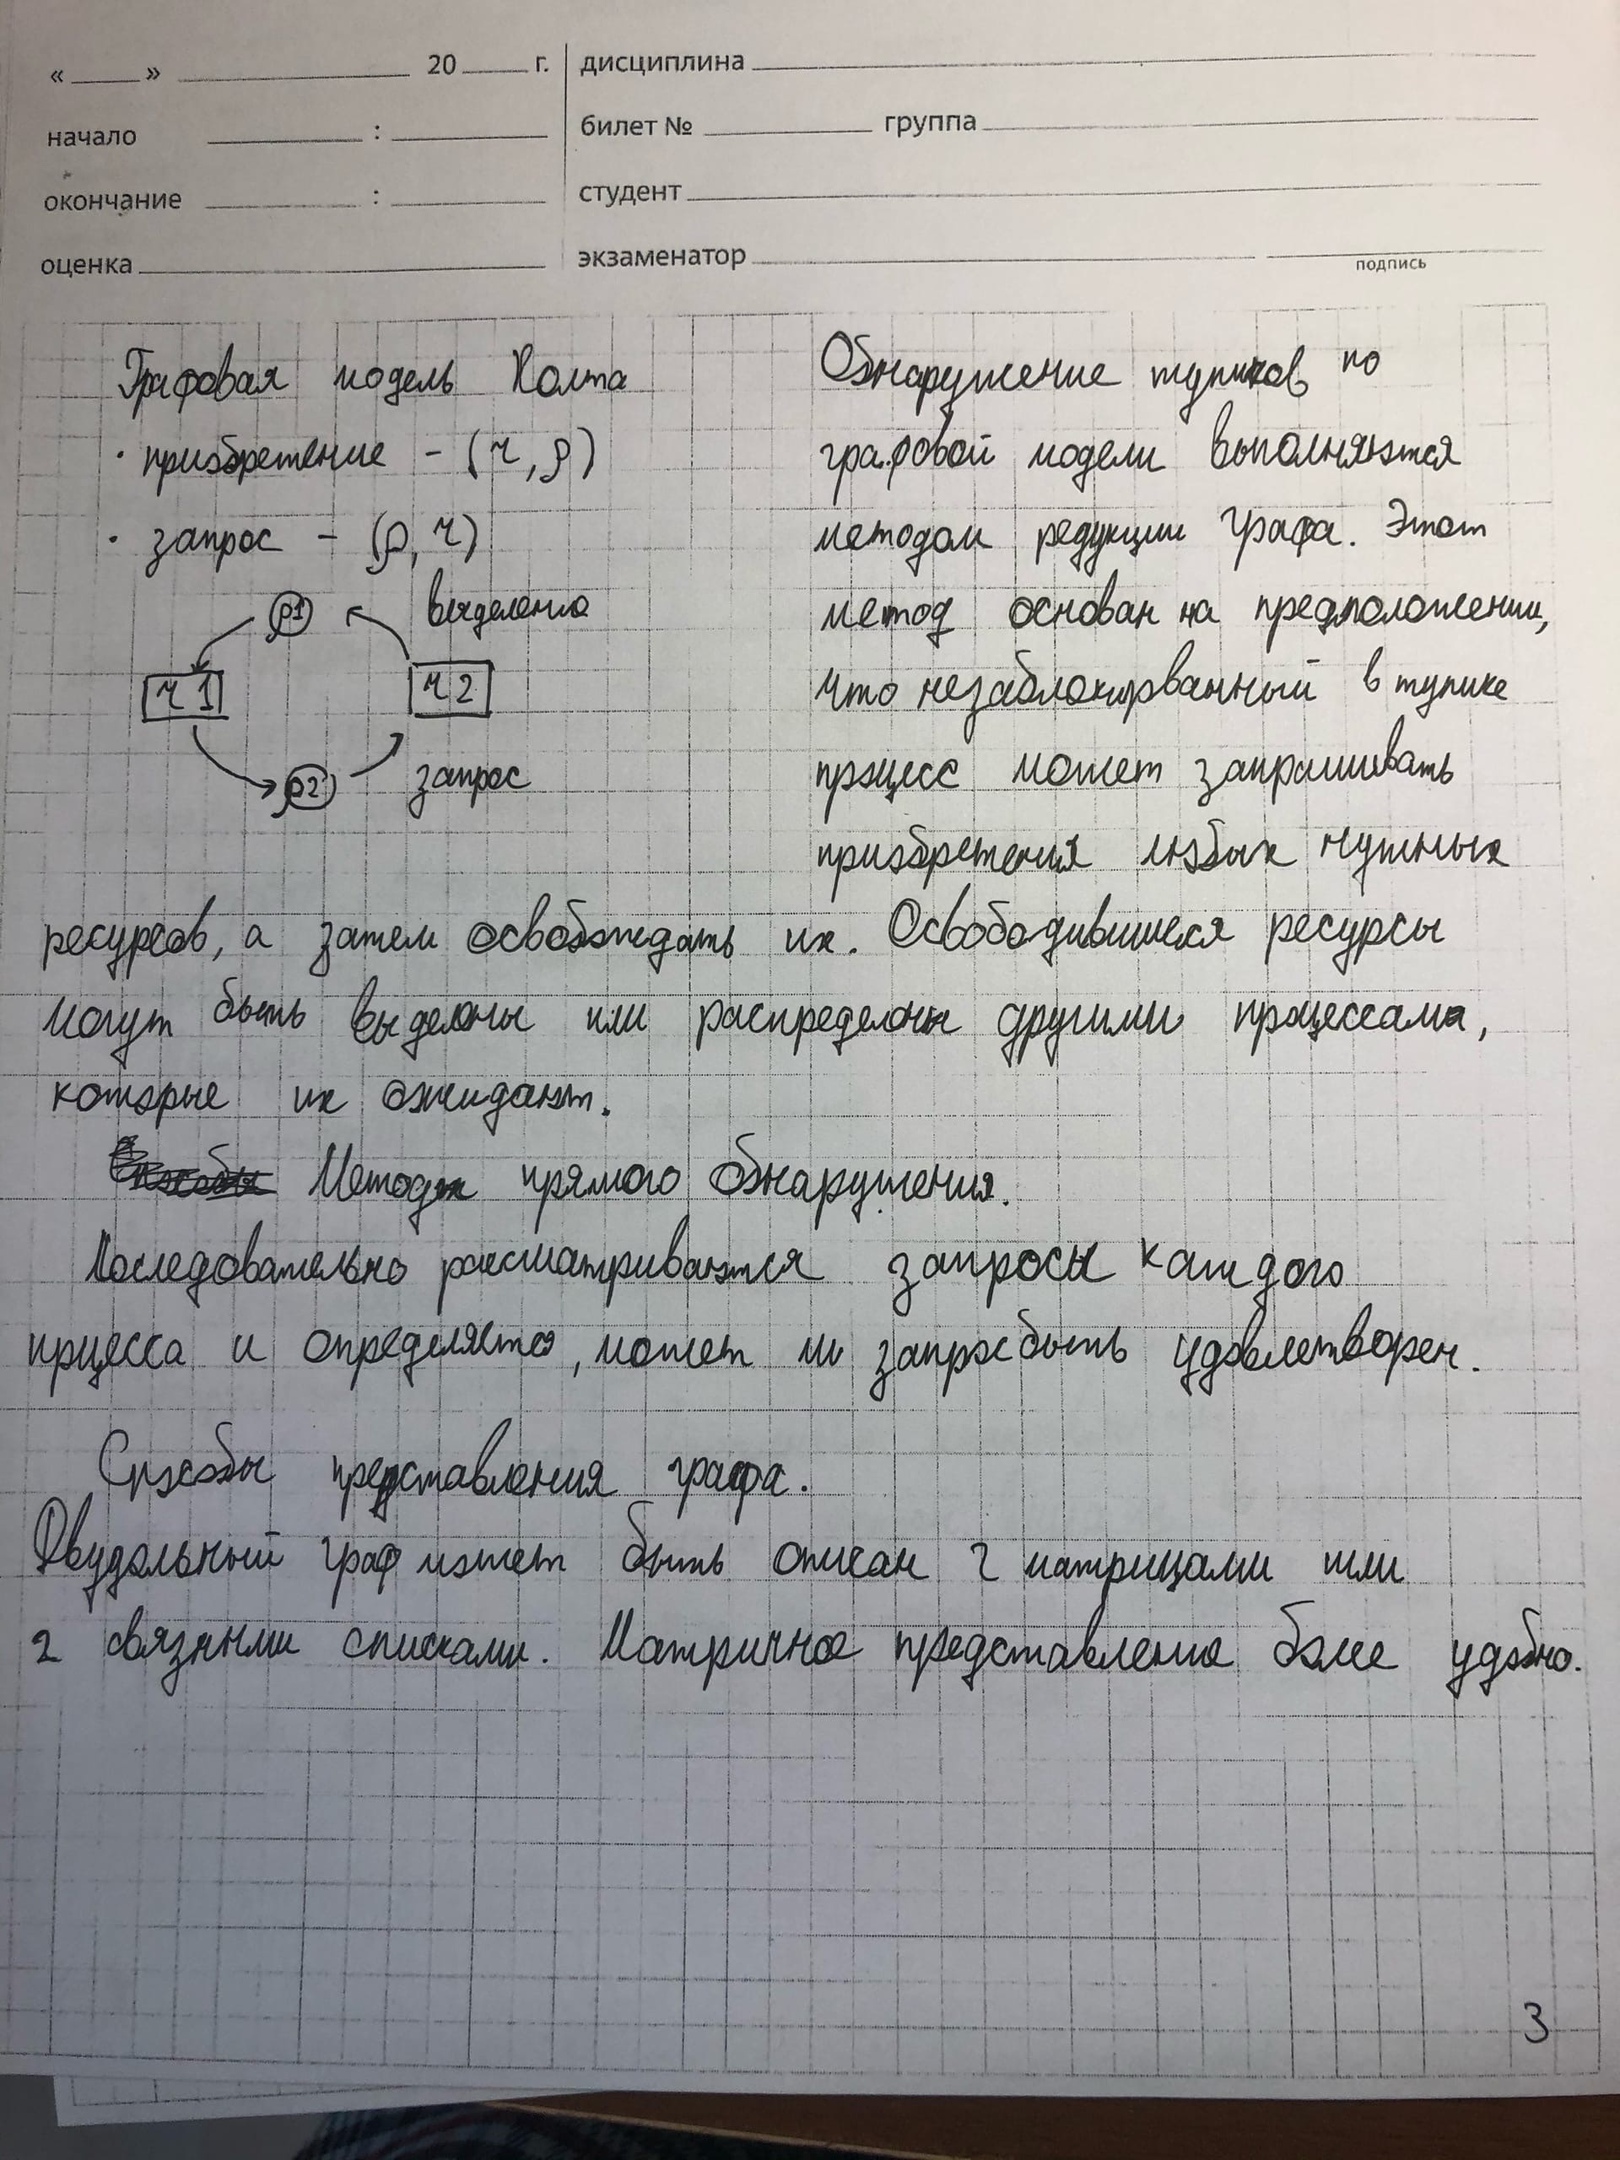 « » 20 г. дисциплина
начало : билет № группа
окончание : студент
оценка экзаменатор
подпись
Графовая модель Холта
· приобретение - (r, p)
· запрос - (p, r)
p1 выделение
r1 r2
p2 запрос
Обнаружение тупиков по
графовой модели выполняются
методом редукции графа. Этот
метод основан на предположении,
что незаблокированный в тупике
процесс может запрашивать
приобретения любых нужных
ресурсов, а затем освобождать их. Освободившиеся ресурсы
могут быть выделены или распределены другими процессами,
которые их ожидают.
Метод прямого обнаружения.
Последовательно рассматриваются запросы каждого
процесса и определяется, может ли запрос быть удовлетворен.
Способы представления графа.
Двудольный граф может быть описан 2 матрицами или
2 связными списками. Матричное представление более удобно.
3